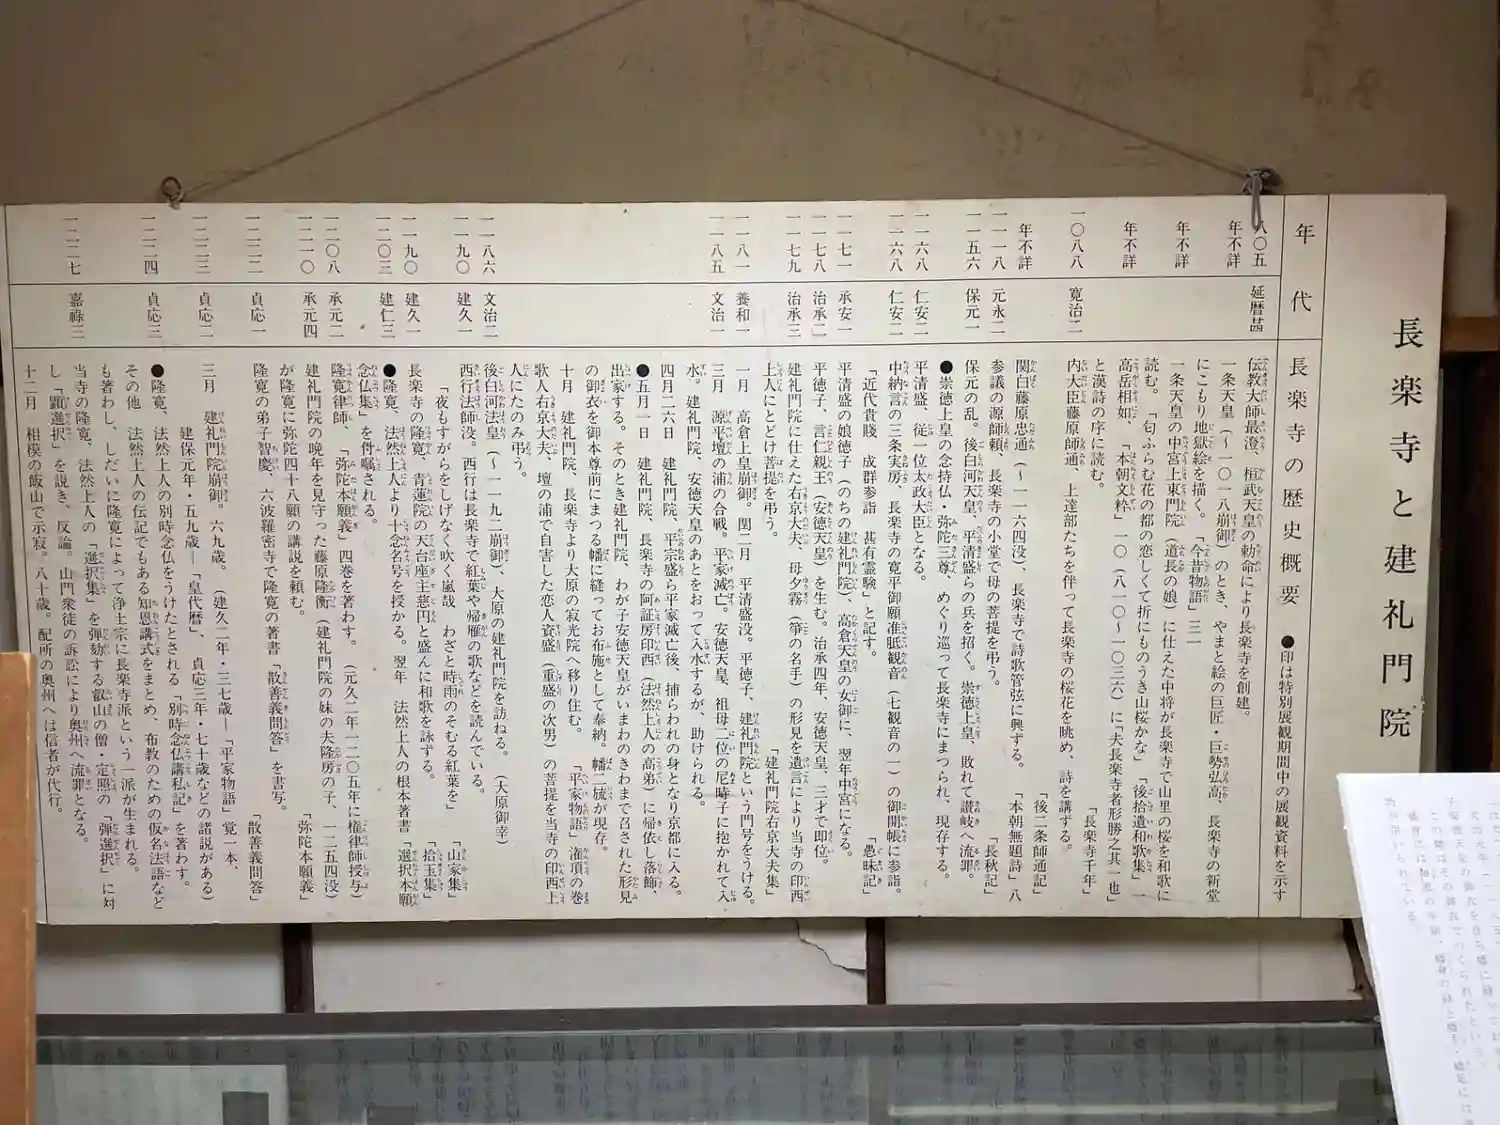 長楽寺と建礼門院
年代
長楽寺の歴史概要 ●印は特別展観期間中の展観資料を示す
八〇五 延暦廿四 伝教大師最澄、桓武天皇の勅命により長楽寺を創建。
年不詳 一条天皇(~一〇一八崩御)のとき、やまと絵の巨匠・巨勢弘高、長楽寺の新堂
にこもり地獄絵を描く。「今昔物語」三一
年不詳 一条天皇の中宮上東門院(道長の娘)に仕えた中将が長楽寺で山里の桜を和歌に
読む。「匂ふらむ花の都の恋しくて折にものうき山桜かな」「後拾遺和歌集」
年不詳 高岳相如、「本朝文粋」一〇(八一〇~一〇三六)に「夫長楽寺者形勝之其一也」
と漢詩の序に読む。 「長楽寺千年」
一〇八八 寛治二 内大臣藤原師通、上達部たちを伴って長楽寺の桜花を眺め、詩を講ずる。
「後二条師通記」
年不詳 関白藤原忠通(~一一六四没)、長楽寺で詩歌管弦に興ずる。「本朝無題詩」八
一一一八 元永二 参議の源師頼、長楽寺の小堂で母の菩提を弔う。 「長秋記」
一一五六 保元一 保元の乱。後白河天皇、平清盛らの兵を招く。崇徳上皇、敗れて讃岐へ流罪。
●崇徳上皇の念持仏・弥陀三尊、めぐり巡って長楽寺にまつられ、現存する。
一一六八 仁安二 平清盛、従一位太政大臣となる。
一一六八 仁安二 中納言の三条実房、長楽寺の寛平御願准胝観音(七観音の一)の御開帳に参詣。
「近代貴賤 成群参詣 甚有霊験」と記す。 「愚昧記」
一一七一 承安一 平清盛の娘徳子(のちの建礼門院)、高倉天皇の女御に、翌年中宮になる。
一一七八 治承二 平徳子、言仁親王(安徳天皇)を生む。治承四年、安徳天皇、三才で即位。
一一七九 治承三 建礼門院に仕えた右京大夫、母夕霧(箏の名手)の形見を遺言により当寺の印西
上人にとどけ菩提を弔う。 「建礼門院右京大夫集」
一一八一 養和一 一月 高倉上皇崩御。閏二月 平清盛没。平徳子、建礼門院という門号をうける。
一一八五 文治一 三月 源平壇の浦の合戦。平家滅亡。安徳天皇、祖母二位の尼時子に抱かれて入
水。建礼門院、安徳天皇のあとをおって入水するが、助けられる。
四月二六日 建礼門院、平宗盛ら平家滅亡後、捕らわれの身となり京都に入る。
●五月一日 建礼門院、長楽寺の阿証房印西(法然上人の高弟)に帰依し落飾、
出家する。そのとき建礼門院、わが子安徳天皇がいまわのきわまで召された形見
の御衣を御本尊前にまつる幡に縫ってお布施として奉納。幡二旒が現存。
十月 建礼門院、長楽寺より大原の寂光院へ移り住む。「平家物語」潅頂の巻
歌人右京大夫、壇の浦で自害した恋人資盛(重盛の次男)の菩提を当寺の印西上
人にたのみ弔う。
一一八六 文治二 後白河法皇(~一一九二崩御)、大原の建礼門院を訪ねる。(大原御幸)
一一九〇 建久一 西行法師没。西行は長楽寺で紅葉や帰雁の歌などを読んでいる。
「夜もすがらをしげなく吹く嵐哉 わざと時雨のそむる紅葉を」 「山家集」
一一九〇 建久一 長楽寺の隆寛、青蓮院の天台座主慈円と盛んに和歌を詠ずる。 「拾玉集」
一二〇三 建仁三 ●隆寛、法然上人より十念名号を授かる。翌年 法然上人の根本著書「選択本願
念仏集」を付嘱される。
一二〇八 承元二 隆寛律師、「弥陀本願義」四巻を著わす。(元久二年一二〇五年に権律師授与)
一二一〇 承元四 建礼門院の晩年を見守った藤原隆衡(建礼門院の妹の夫隆房の子、一二五四没)
が隆寛に弥陀四十八願の講説を頼む。 「弥陀本願義」
一二二二 貞応一 隆寛の弟子智慶、六波羅密寺で隆寛の著書「散善義問答」を書写。
「散善義問答」
一二二三 貞応二 三月 建礼門院崩御。六九歳。(建久二年・三七歳―「平家物語」覚一本、
建保元年・五九歳―「皇代暦」、貞応三年・七十歳などの諸説がある)
一二二四 貞応三 ●隆寛、法然上人の別時念仏をうけたとされる「別時念仏講私記」を著わす。
その他 法然上人の伝記でもある知恩講式をまとめ、布教のための仮名法語など
も著わし、しだいに隆寛によって浄土宗に長楽寺派という一派が生まれる。
一二二七 嘉禄三 当寺の隆寛、法然上人の「選択集」を弾劾する叡山の僧・定照の「弾選択」に対
し「顕選択」を説き、反論。山門衆徒の訴訟により奥州へ流罪となる。
十二月 相模の飯山で示寂。八十歳。配所の奥州へは信者が代行。